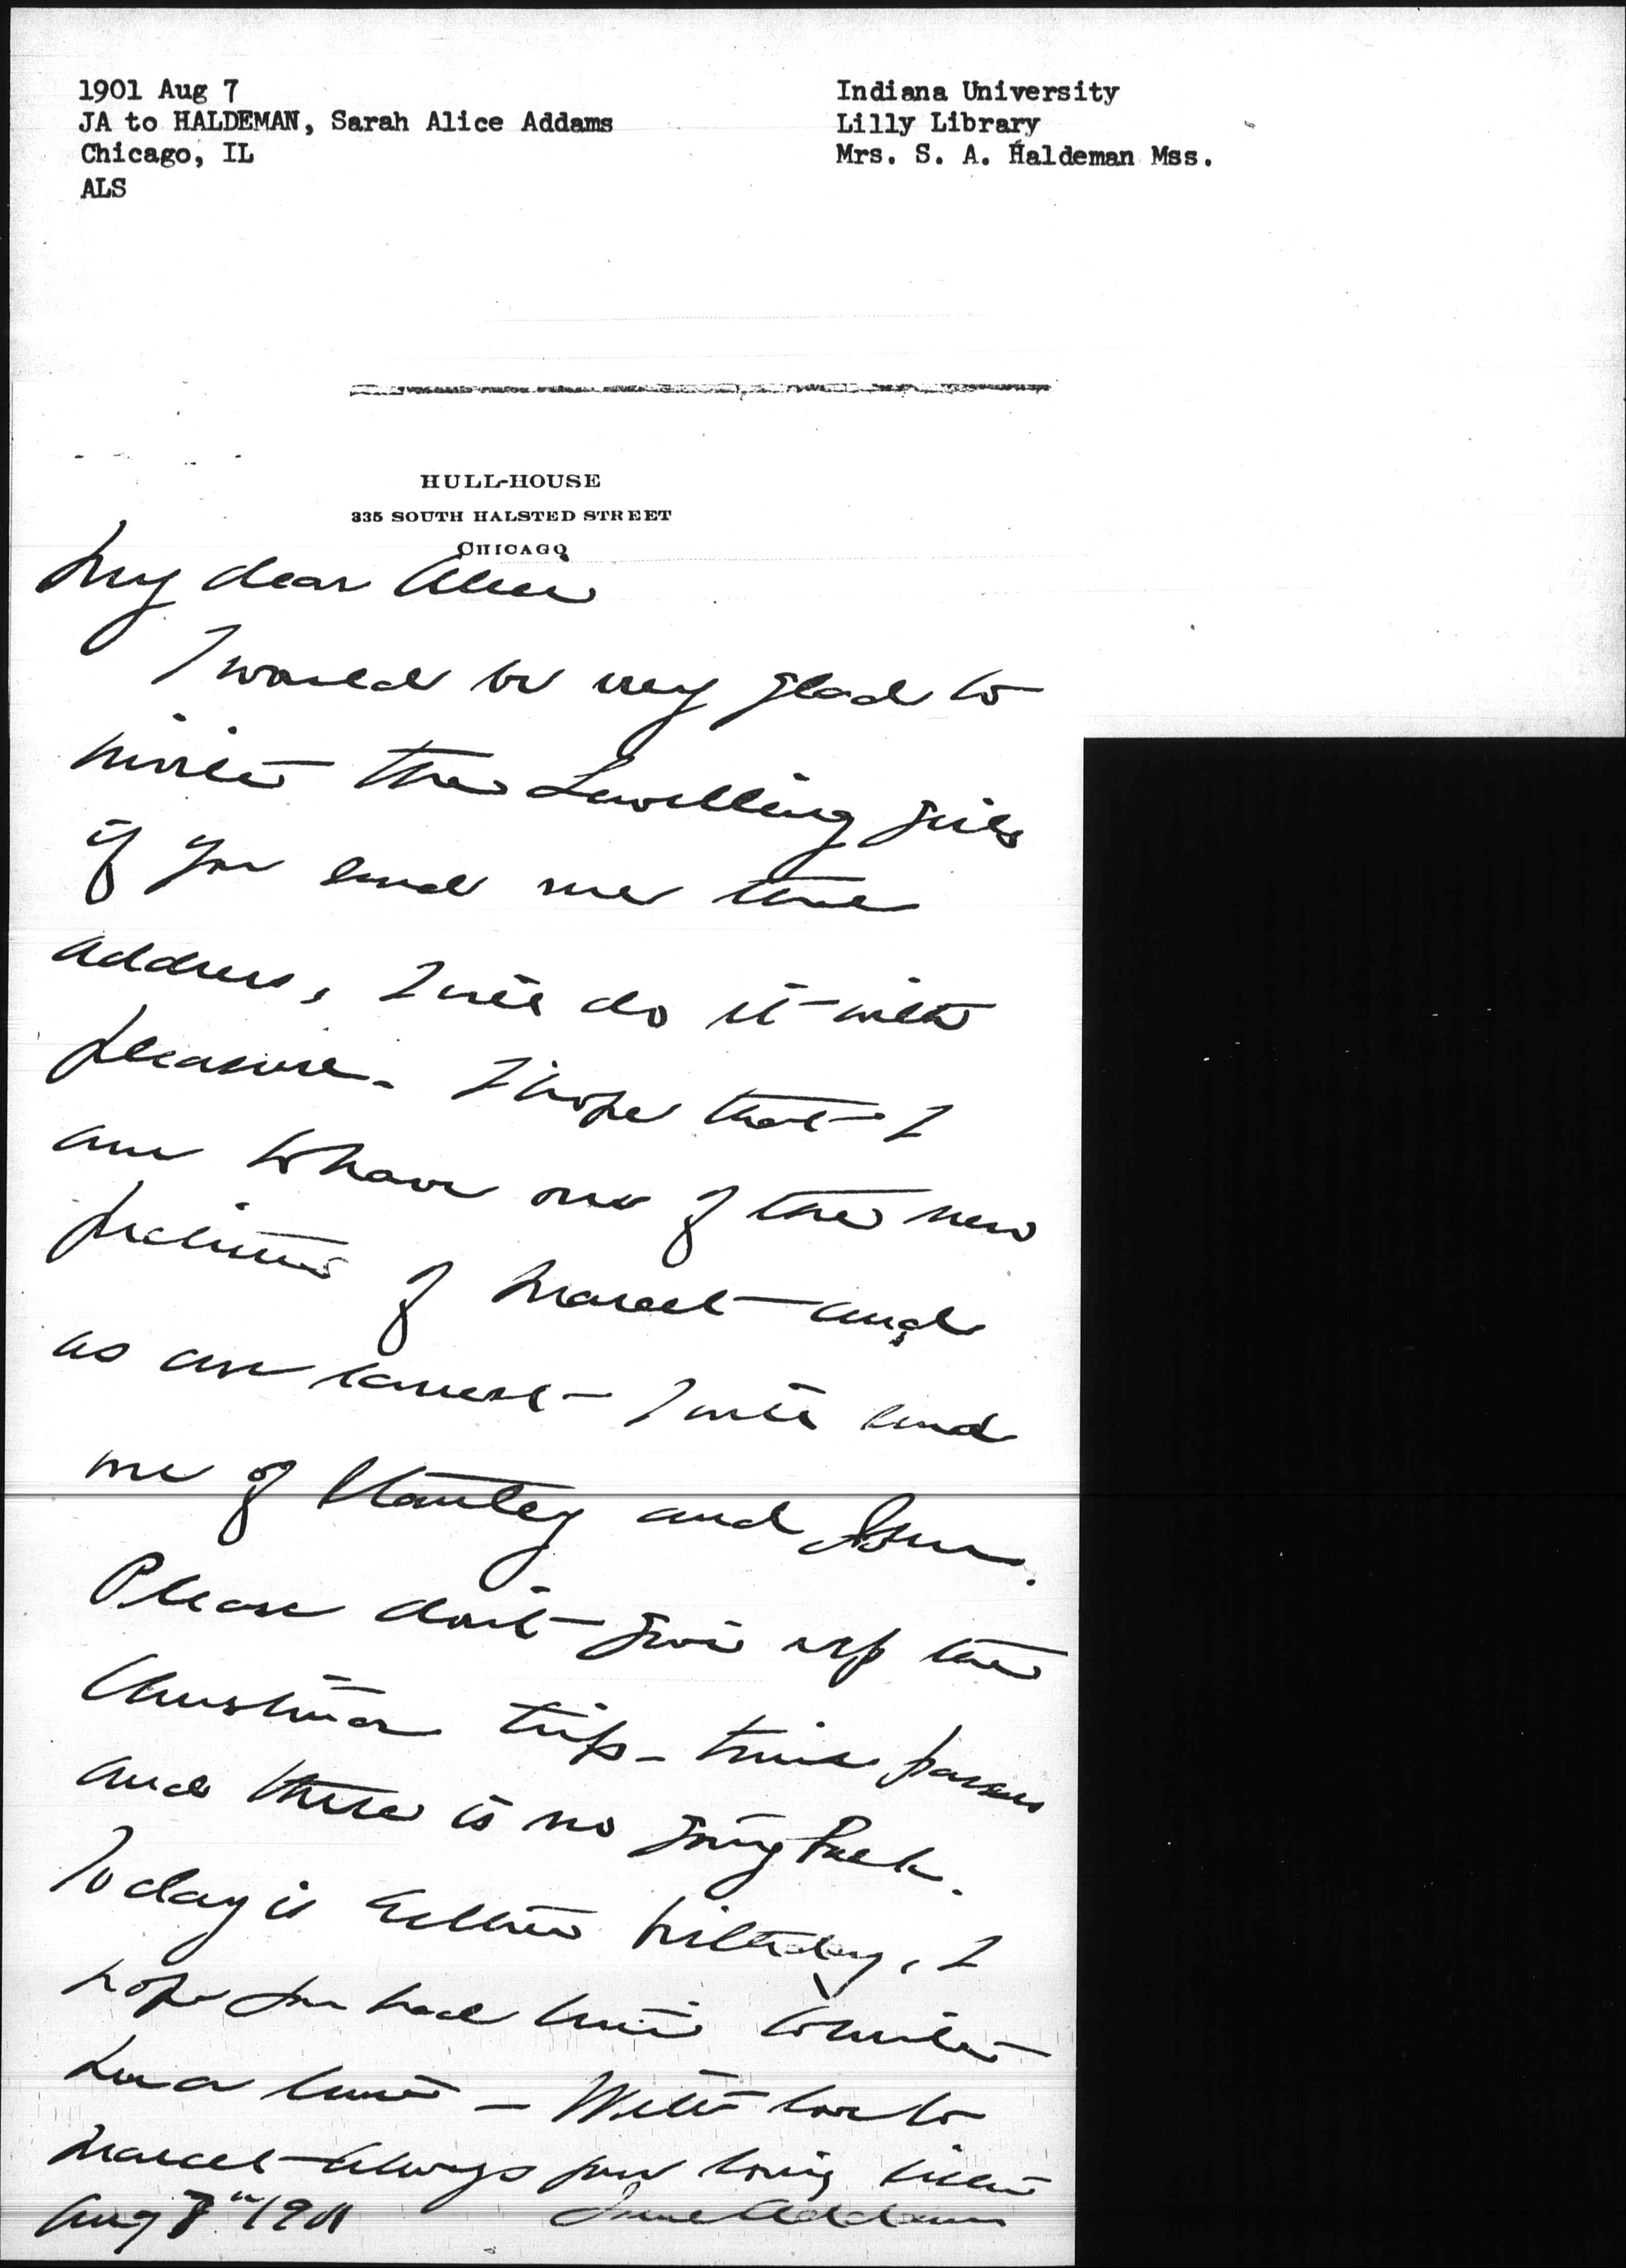 1901 Aug 7
JA to HALDEMAN, Sarah Alice Addams
Chicago, IL
ALS
Indiana University
Lilly Library
Mrs. S. A. Haldeman Mss.
HULL-HOUSE
335 SOUTH HALSTED STREET
CHICAGO
My dear Alice
I would be very glad to
invite the Lewelling girls
if you send me the
address, I will do it with
pleasure. I hope that I
am to have one of the new
pictures of Marcet and
as an earnest I will send
one of Stanley and
Please don't give up the
Christmas trip - time passes
and there is no going back.
Today is Esther's birthday, I
hope you had time to write
her a line - With love to
Marcet always your loving sister
Aug 7" 1901 Jane Addams